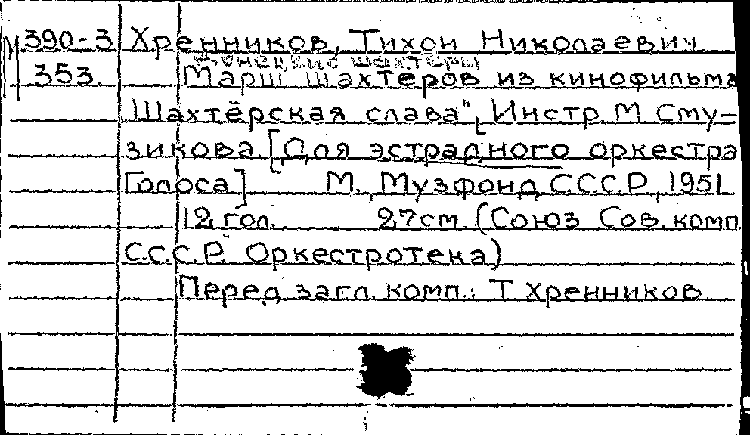 М 390-3 Хренников, Тихон Николаевич
Донецкие шахтеры
353 Марш шахтеров из кинофильма
Шахтёрская слава", Инстр. М Сму-
зикова. [Для эстрадного оркестра
Голоса] М., Музфонд СССР, 1951
12 гол. 27см. (Союз Сов. комп.
С.С.С.Р. Оркестротека)
Перед загл. комп.: Т Хренников